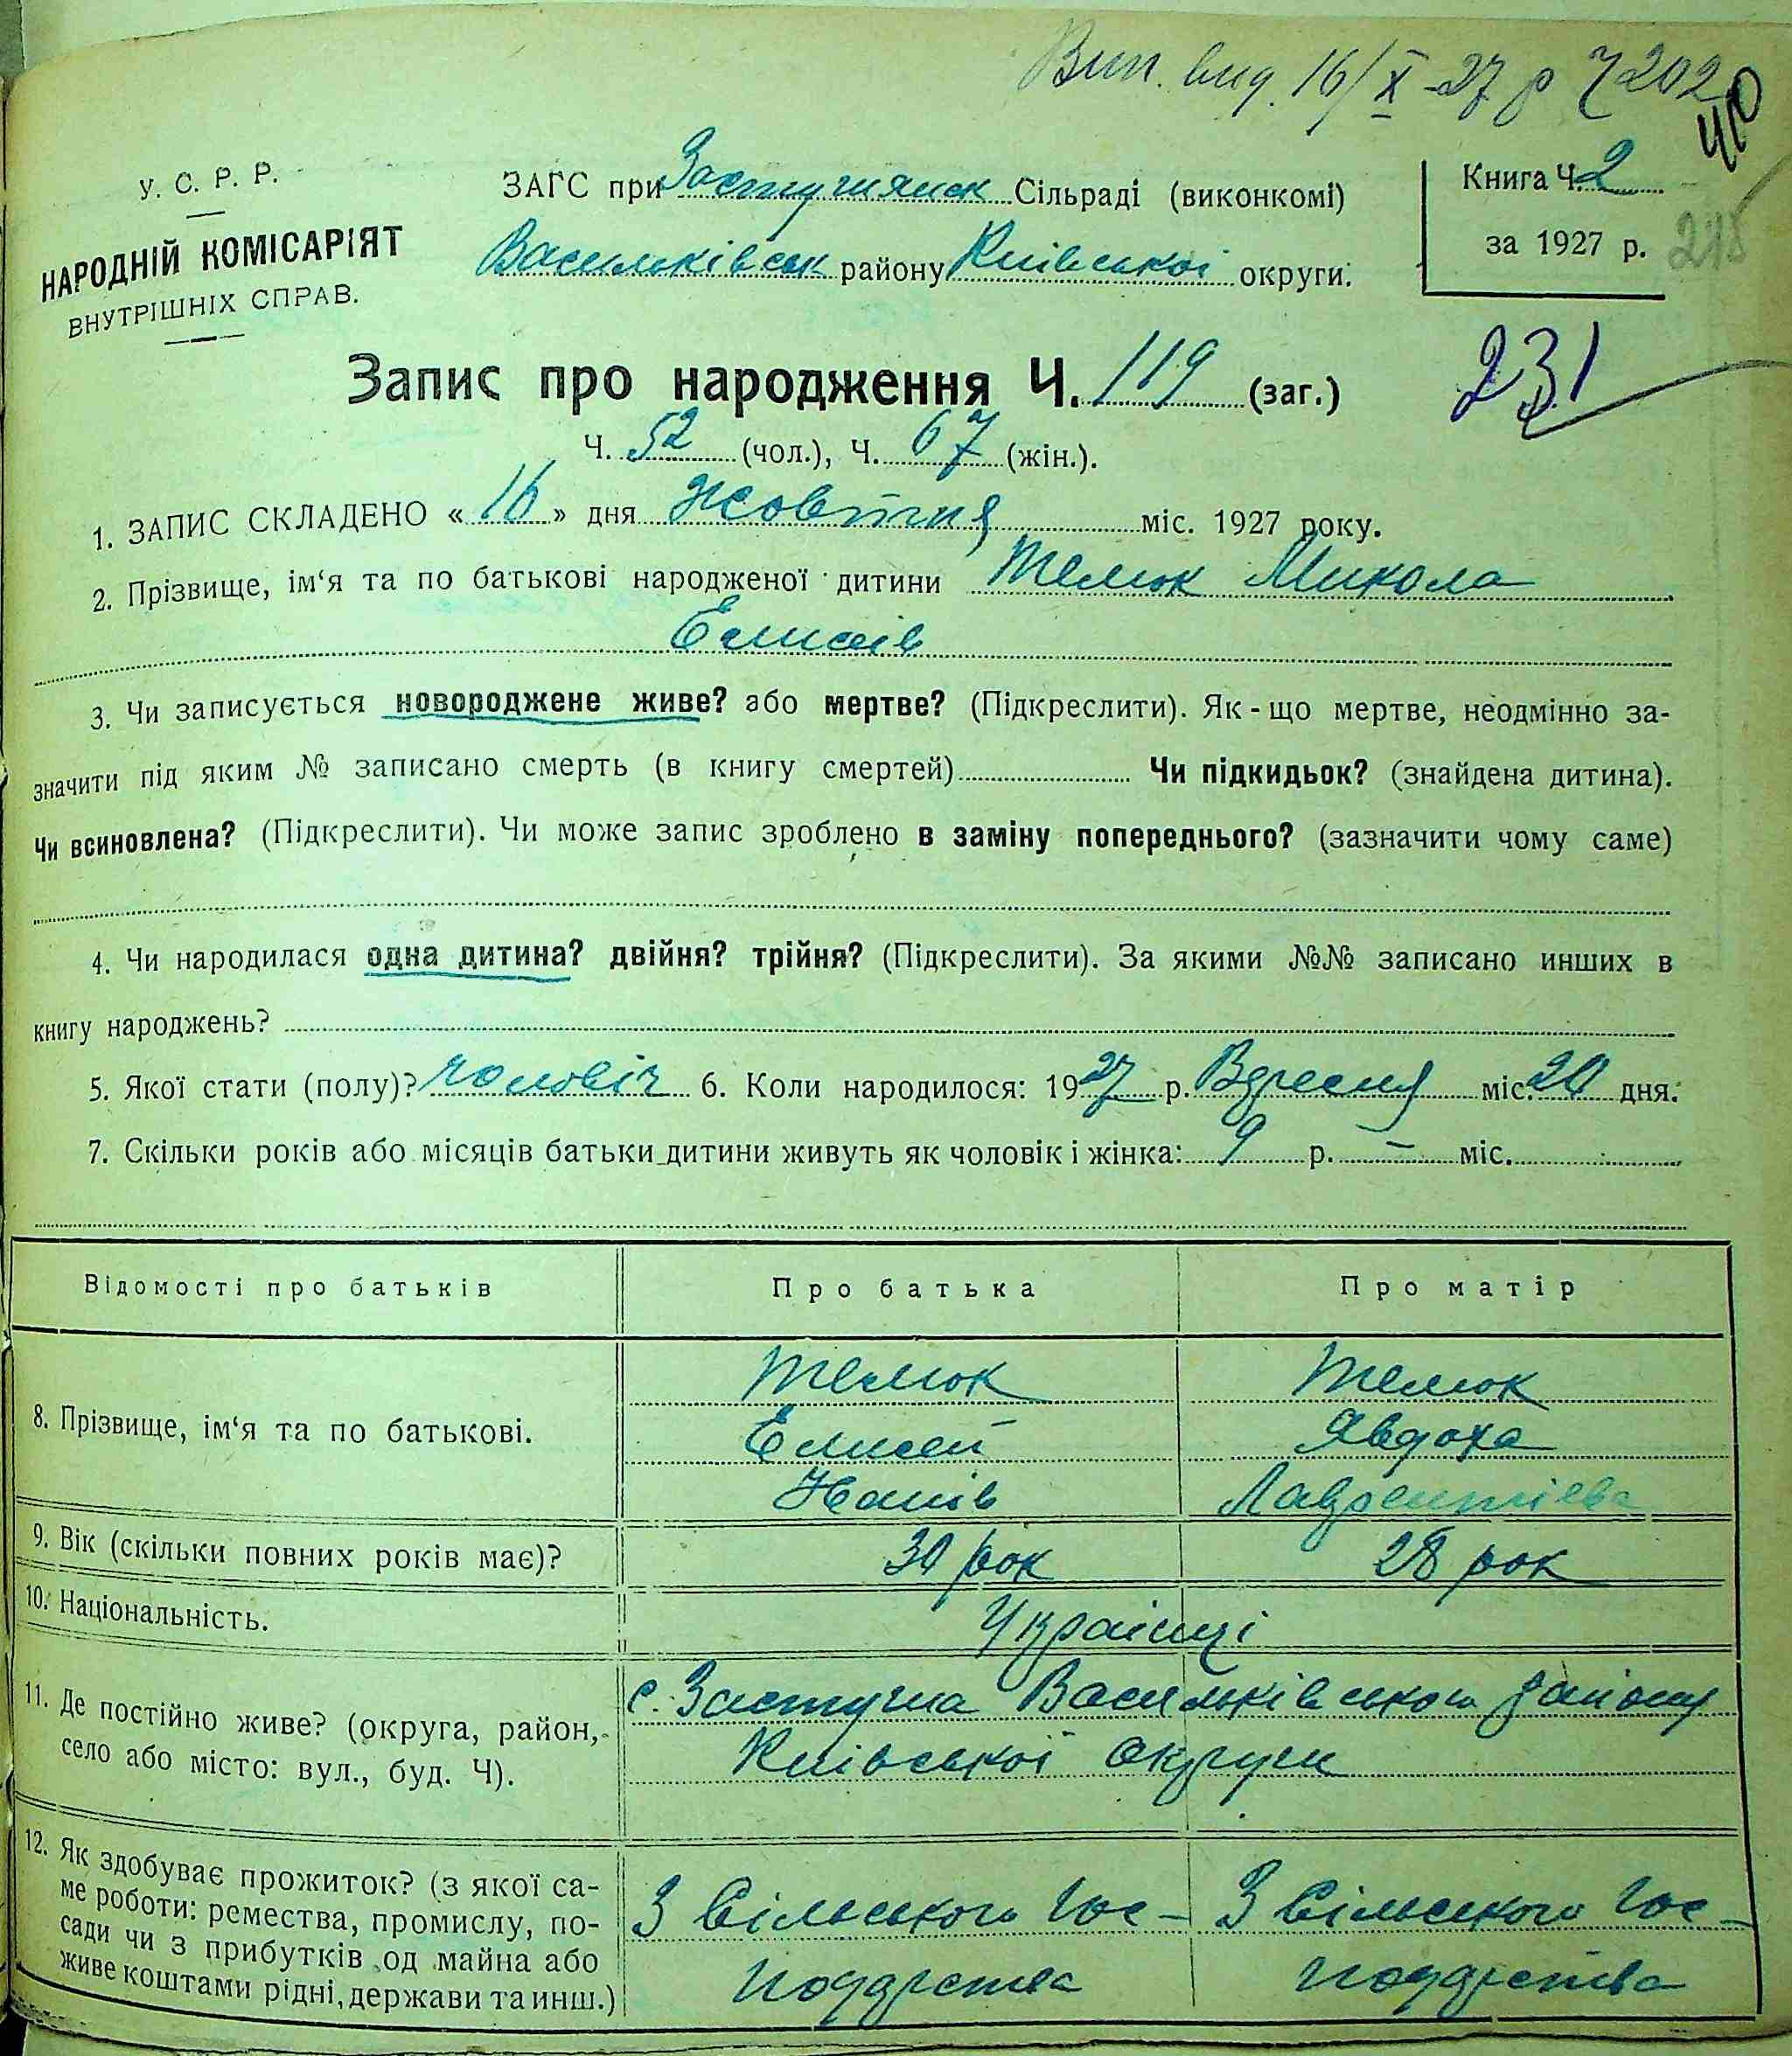 Вип. вид. 16/X-27 р Ч 202
40
У. С. Р. Р.
НАРОДНІЙ КОМІСАРІЯТ
ВНУТРІШНІХ СПРАВ.
ЗАГС при Застугнянск Сільраді (виконкомі)
Васильківськ району Київської округи.
Книга Ч. 2
за 1927 р.
215
Запис про народження Ч. 119 (заг.)
231
Ч. 52 (чол.), Ч. 67 (жін.).
1. ЗАПИС СКЛАДЕНО « 16 » дня Жовтня міс. 1927 року.
2. Прізвище, ім‘я та по батькові народженої дитини Телюк Микола
Елисеїв
3. Чи записується новороджене живе? або мертве? (Підкреслити). Як-що мертве, неодмінно за-
значити під яким № записано смерть (в книгу смертей) Чи підкидьок? (знайдена дитина).
Чи всиновлена? (Підкреслити). Чи може запис зроблено в заміну попереднього? (зазначити чому саме)
4. Чи народилася одна дитина? двійня? трійня? (Підкреслити). За якими №№ записано инших в
книгу народжень?
5. Якої стати (полу)? чоловіч 6. Коли народилося: 1927 р. Вересня міс. 20 дня.
7. Скільки років або місяців батьки дитини живуть як чоловік і жінка: 9 р. – міс.
Відомості про батьків Про батька Про матір
8. Прізвище, ім‘я та по батькові.
Телюк Телюк
Елисей Явдоха
Лаврентіева
9. Вік (скільки повних років має)? 30 рок 28 рок
10. Національність. Українці
11. Де постійно живе? (округа, район,
село або місто: вул., буд. Ч).
с. Застугна Васильківського району
Київської округи
12. Як здобуває прожиток? (з якої са-
ме роботи: ремества, промислу, по-
сади чи з прибутків од майна або
живе коштами рідні, держави та инш.)
З сільського гос- З сільського гос-
подарства подарства